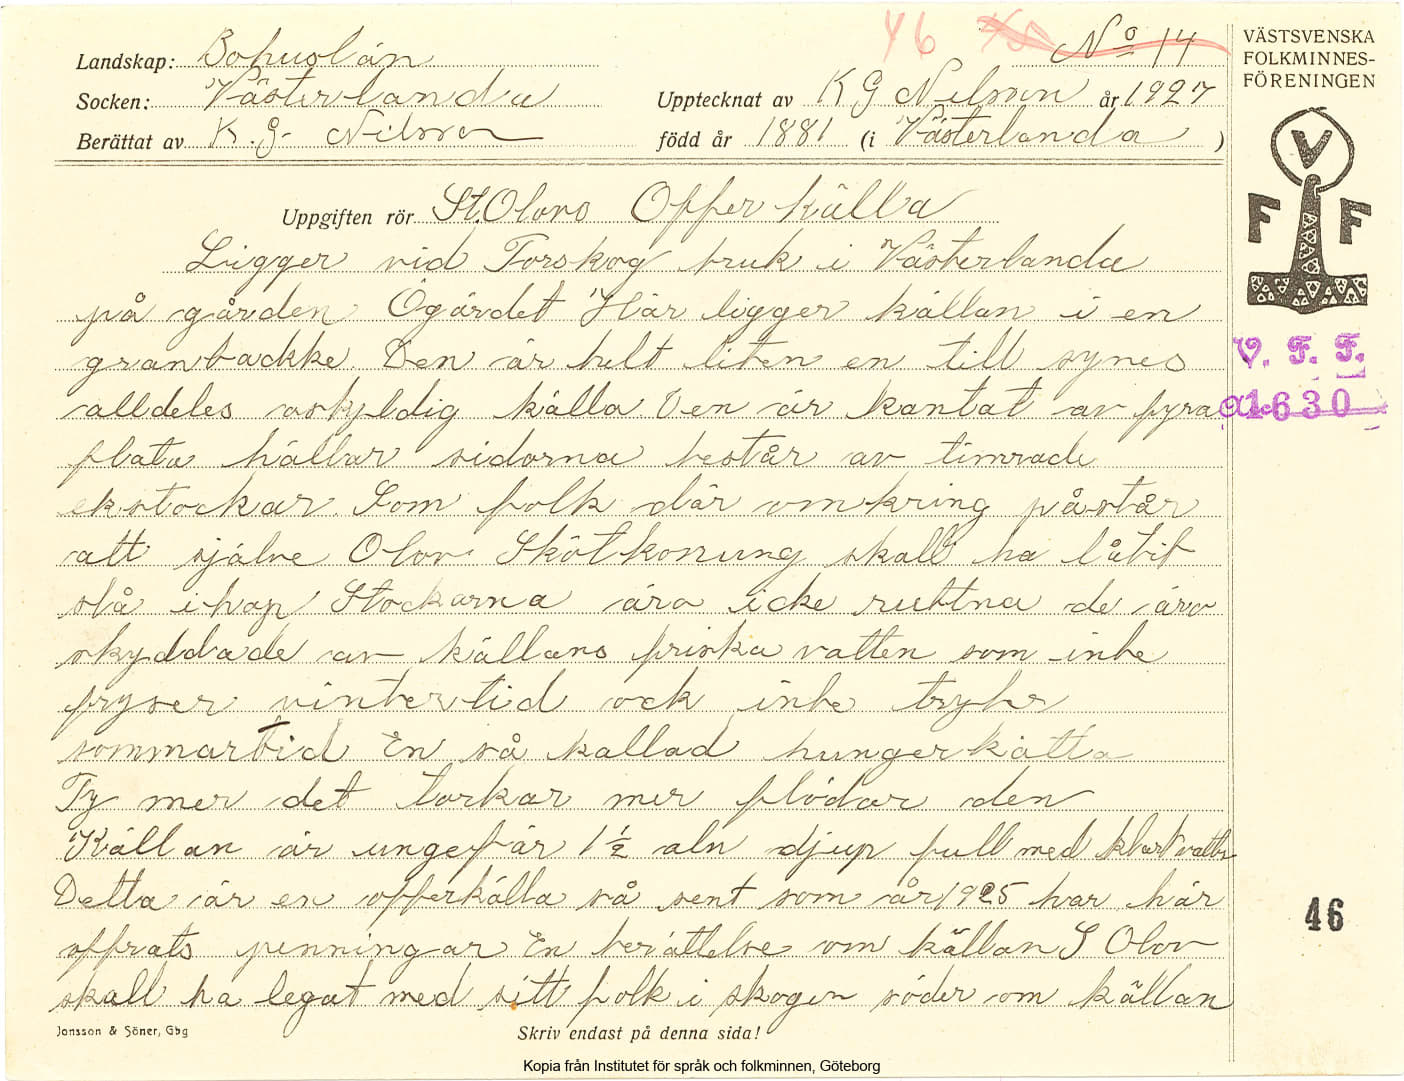 46 No 14
Landskap: Bohuslän
Socken: Västerlanda
Upptecknat av K G Nilsson år 1927
Berättat av K. G. Nilsson
född år 1881 (i Västerlanda )
VÄSTSVENSKA
FOLKMINNES-
FÖRENINGEN
V
F F
Uppgiften rör St. Olovs Offer källa
Ligger vid Forskog bruk i Västerlanda
på gården Ögärdet Här ligger källan i en
granbackke. Den är helt liten en till synes
alldeles oskyldig källa Den är kantat av fyra
flata hällar sidorna består av timrade
ekstockar. Som folk där omkring påstår
att själve Olov Skötkonung skall ha låtit
slå ihop Stockarna äro icke ruttna de äro
skyddade av källans friska vatten som inte
fryser vintertid ock inte tryter
sommartid En så kallad hungerkätta
Ty mer det torkar mer flödar den
Källan är ungefär 1 ½ aln djup full med klart vatten
Detta är en offerkälla så sent som år 1925 har här
offrats penningar En berättelse om källan S Olov
skall ha legat med sitt folk i skogen söder om källan
V. F. F.
1630
46
Jonsson & Söner, Gbg
Skriv endast på denna sida!
Kopia från Institutet för språk och folkminnen, Göteborg